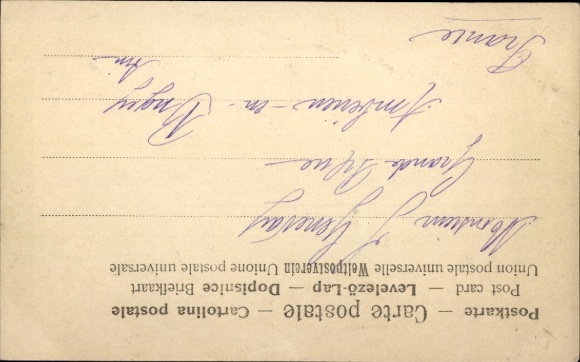 Postkarte — Carte postale — Cartolina postale
Post card — Levelező-Lap — Dopisnice Briefkaart
Union postale universelle Weltpostverein Unione postale universale
Monsieur J
Grande
Ambérieu-en-Bugey
Ain
France